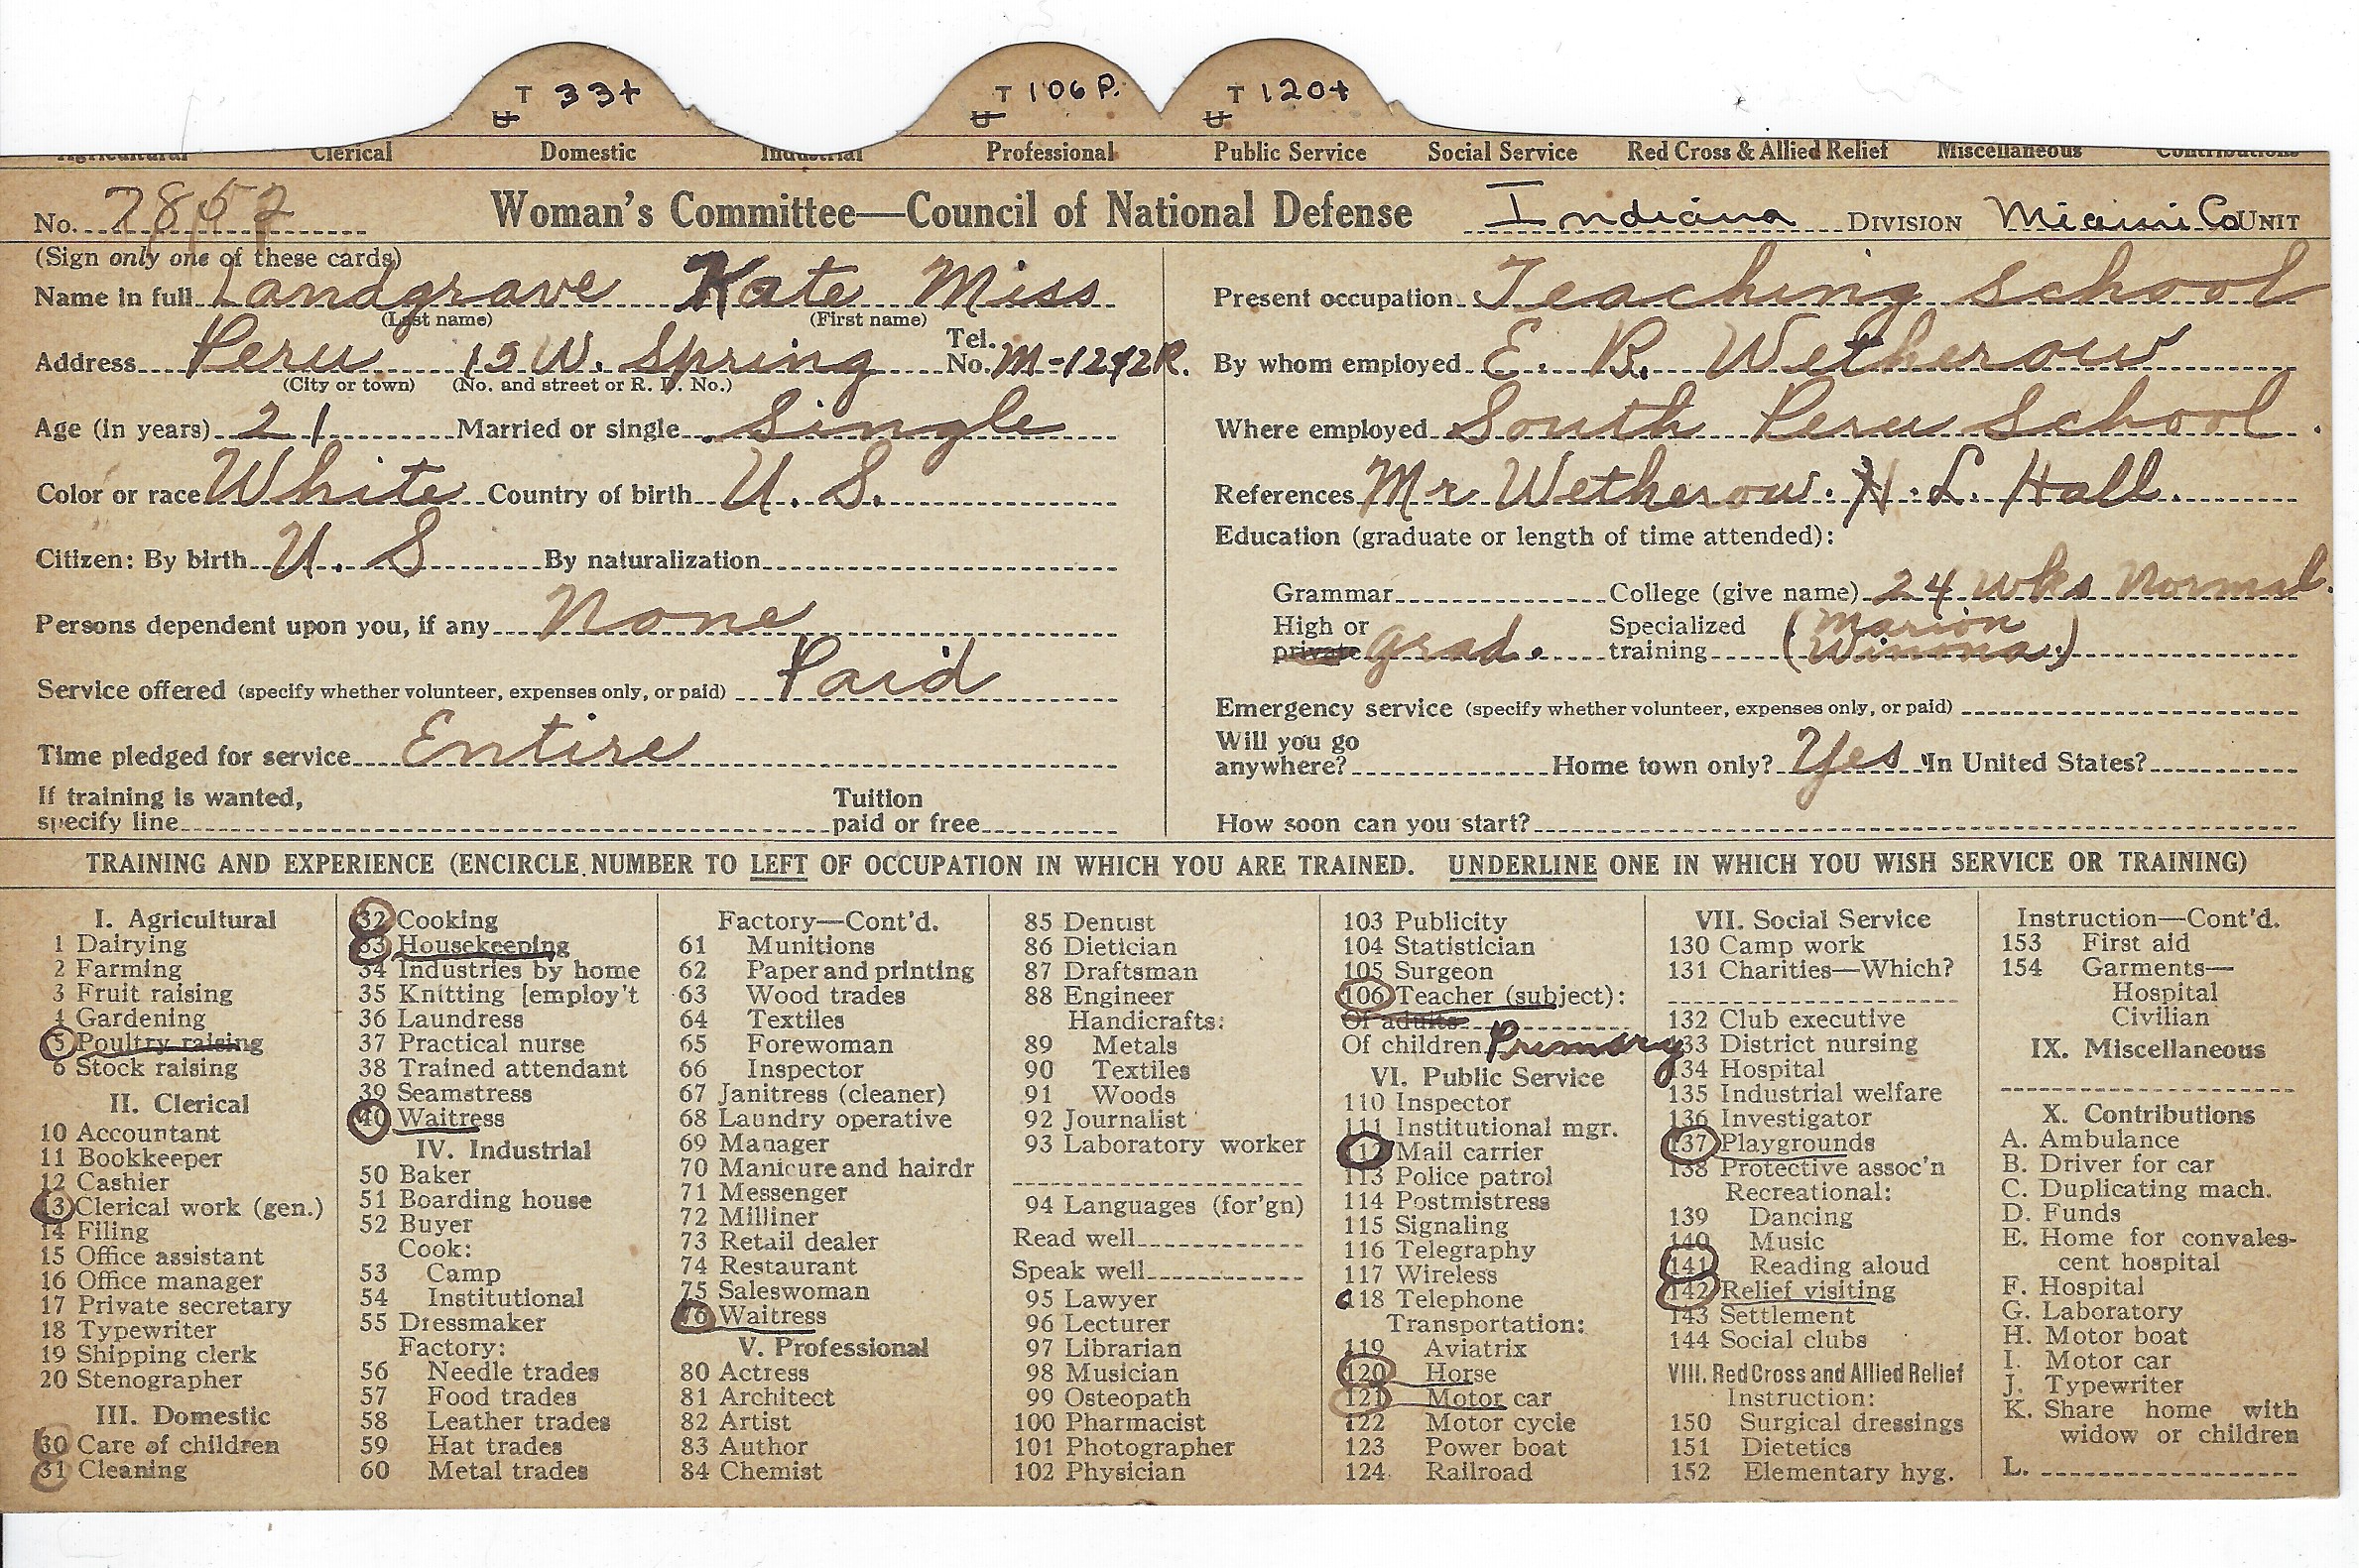 T 33+ T 106 P. T 120+
U U U
Agricultural Clerical Domestic Industrial Professional Public Service Social Service Red Cross & Allied Relief Miscellaneous Contributions
No. 7852 Woman's Committee—Council of National Defense Indiana DIVISION Miami Co UNIT
(Sign only one of these cards)
Name in full Landgrave Kate Miss
(Last name) (First name)
Address Peru 15 W. Spring Tel. No. M-1242R.
(City or town) (No. and street or R. D. No.)
Age (in years) 21 Married or single Single
Color or race White Country of birth U. S.
Citizen: By birth U. S By naturalization
Persons dependent upon you, if any None
Service offered (specify whether volunteer, expenses only, or paid) Paid
Time pledged for service Entire
If training is wanted, Tuition
specify line paid or free
Present occupation Teaching school
By whom employed E. B. Wetherow
Where employed South Peru School.
References Mr Wetherow. H. L. Hall.
Education (graduate or length of time attended):
Grammar College (give name) 24 wks Normal.
High or Specialized (Marion
private grad. training Winona.)
Emergency service (specify whether volunteer, expenses only, or paid)
Will you go
anywhere? Home town only? Yes In United States?
How soon can you start?
TRAINING AND EXPERIENCE (ENCIRCLE NUMBER TO LEFT OF OCCUPATION IN WHICH YOU ARE TRAINED. UNDERLINE ONE IN WHICH YOU WISH SERVICE OR TRAINING)
I. Agricultural
1 Dairying
2 Farming
3 Fruit raising
4 Gardening
5 Poultry raising
6 Stock raising
II. Clerical
10 Accountant
11 Bookkeeper
12 Cashier
13 Clerical work (gen.)
14 Filing
15 Office assistant
16 Office manager
17 Private secretary
18 Typewriter
19 Shipping clerk
20 Stenographer
III. Domestic
30 Care of children
31 Cleaning
32 Cooking
33 Housekeeping
34 Industries by home
35 Knitting [employ't
36 Laundress
37 Practical nurse
38 Trained attendant
39 Seamstress
40 Waitress
IV. Industrial
50 Baker
51 Boarding house
52 Buyer
Cook:
53 Camp
54 Institutional
55 Dressmaker
Factory:
56 Needle trades
57 Food trades
58 Leather trades
59 Hat trades
60 Metal trades
Factory—Cont'd.
61 Munitions
62 Paper and printing
63 Wood trades
64 Textiles
65 Forewoman
66 Inspector
67 Janitress (cleaner)
68 Laundry operative
69 Manager
70 Manicure and hairdr
71 Messenger
72 Milliner
73 Retail dealer
74 Restaurant
75 Saleswoman
76 Waitress
V. Professional
80 Actress
81 Architect
82 Artist
83 Author
84 Chemist
85 Dentist
86 Dietician
87 Draftsman
88 Engineer
Handicrafts:
89 Metals
90 Textiles
91 Woods
92 Journalist
93 Laboratory worker
94 Languages (for'gn)
Read well
Speak well
95 Lawyer
96 Lecturer
97 Librarian
98 Musician
99 Osteopath
100 Pharmacist
101 Photographer
102 Physician
103 Publicity
104 Statistician
105 Surgeon
106 Teacher (subject):
Of adults
Of children Primary
VI. Public Service
110 Inspector
111 Institutional mgr.
112 Mail carrier
113 Police patrol
114 Postmistress
115 Signaling
116 Telegraphy
117 Wireless
118 Telephone
Transportation:
119 Aviatrix
120 Horse
121 Motor car
122 Motor cycle
123 Power boat
124 Railroad
VII. Social Service
130 Camp work
131 Charities—Which?
132 Club executive
133 District nursing
134 Hospital
135 Industrial welfare
136 Investigator
137 Playgrounds
138 Protective assoc'n
Recreational:
139 Dancing
140 Music
141 Reading aloud
142 Relief visiting
143 Settlement
144 Social clubs
VIII. Red Cross and Allied Relief
Instruction:
150 Surgical dressings
151 Dietetics
152 Elementary hyg.
Instruction—Cont'd.
153 First aid
154 Garments—
Hospital
Civilian
IX. Miscellaneous
X. Contributions
A. Ambulance
B. Driver for car
C. Duplicating mach.
D. Funds
E. Home for convales-
cent hospital
F. Hospital
G. Laboratory
H. Motor boat
I. Motor car
J. Typewriter
K. Share home with
widow or children
L.